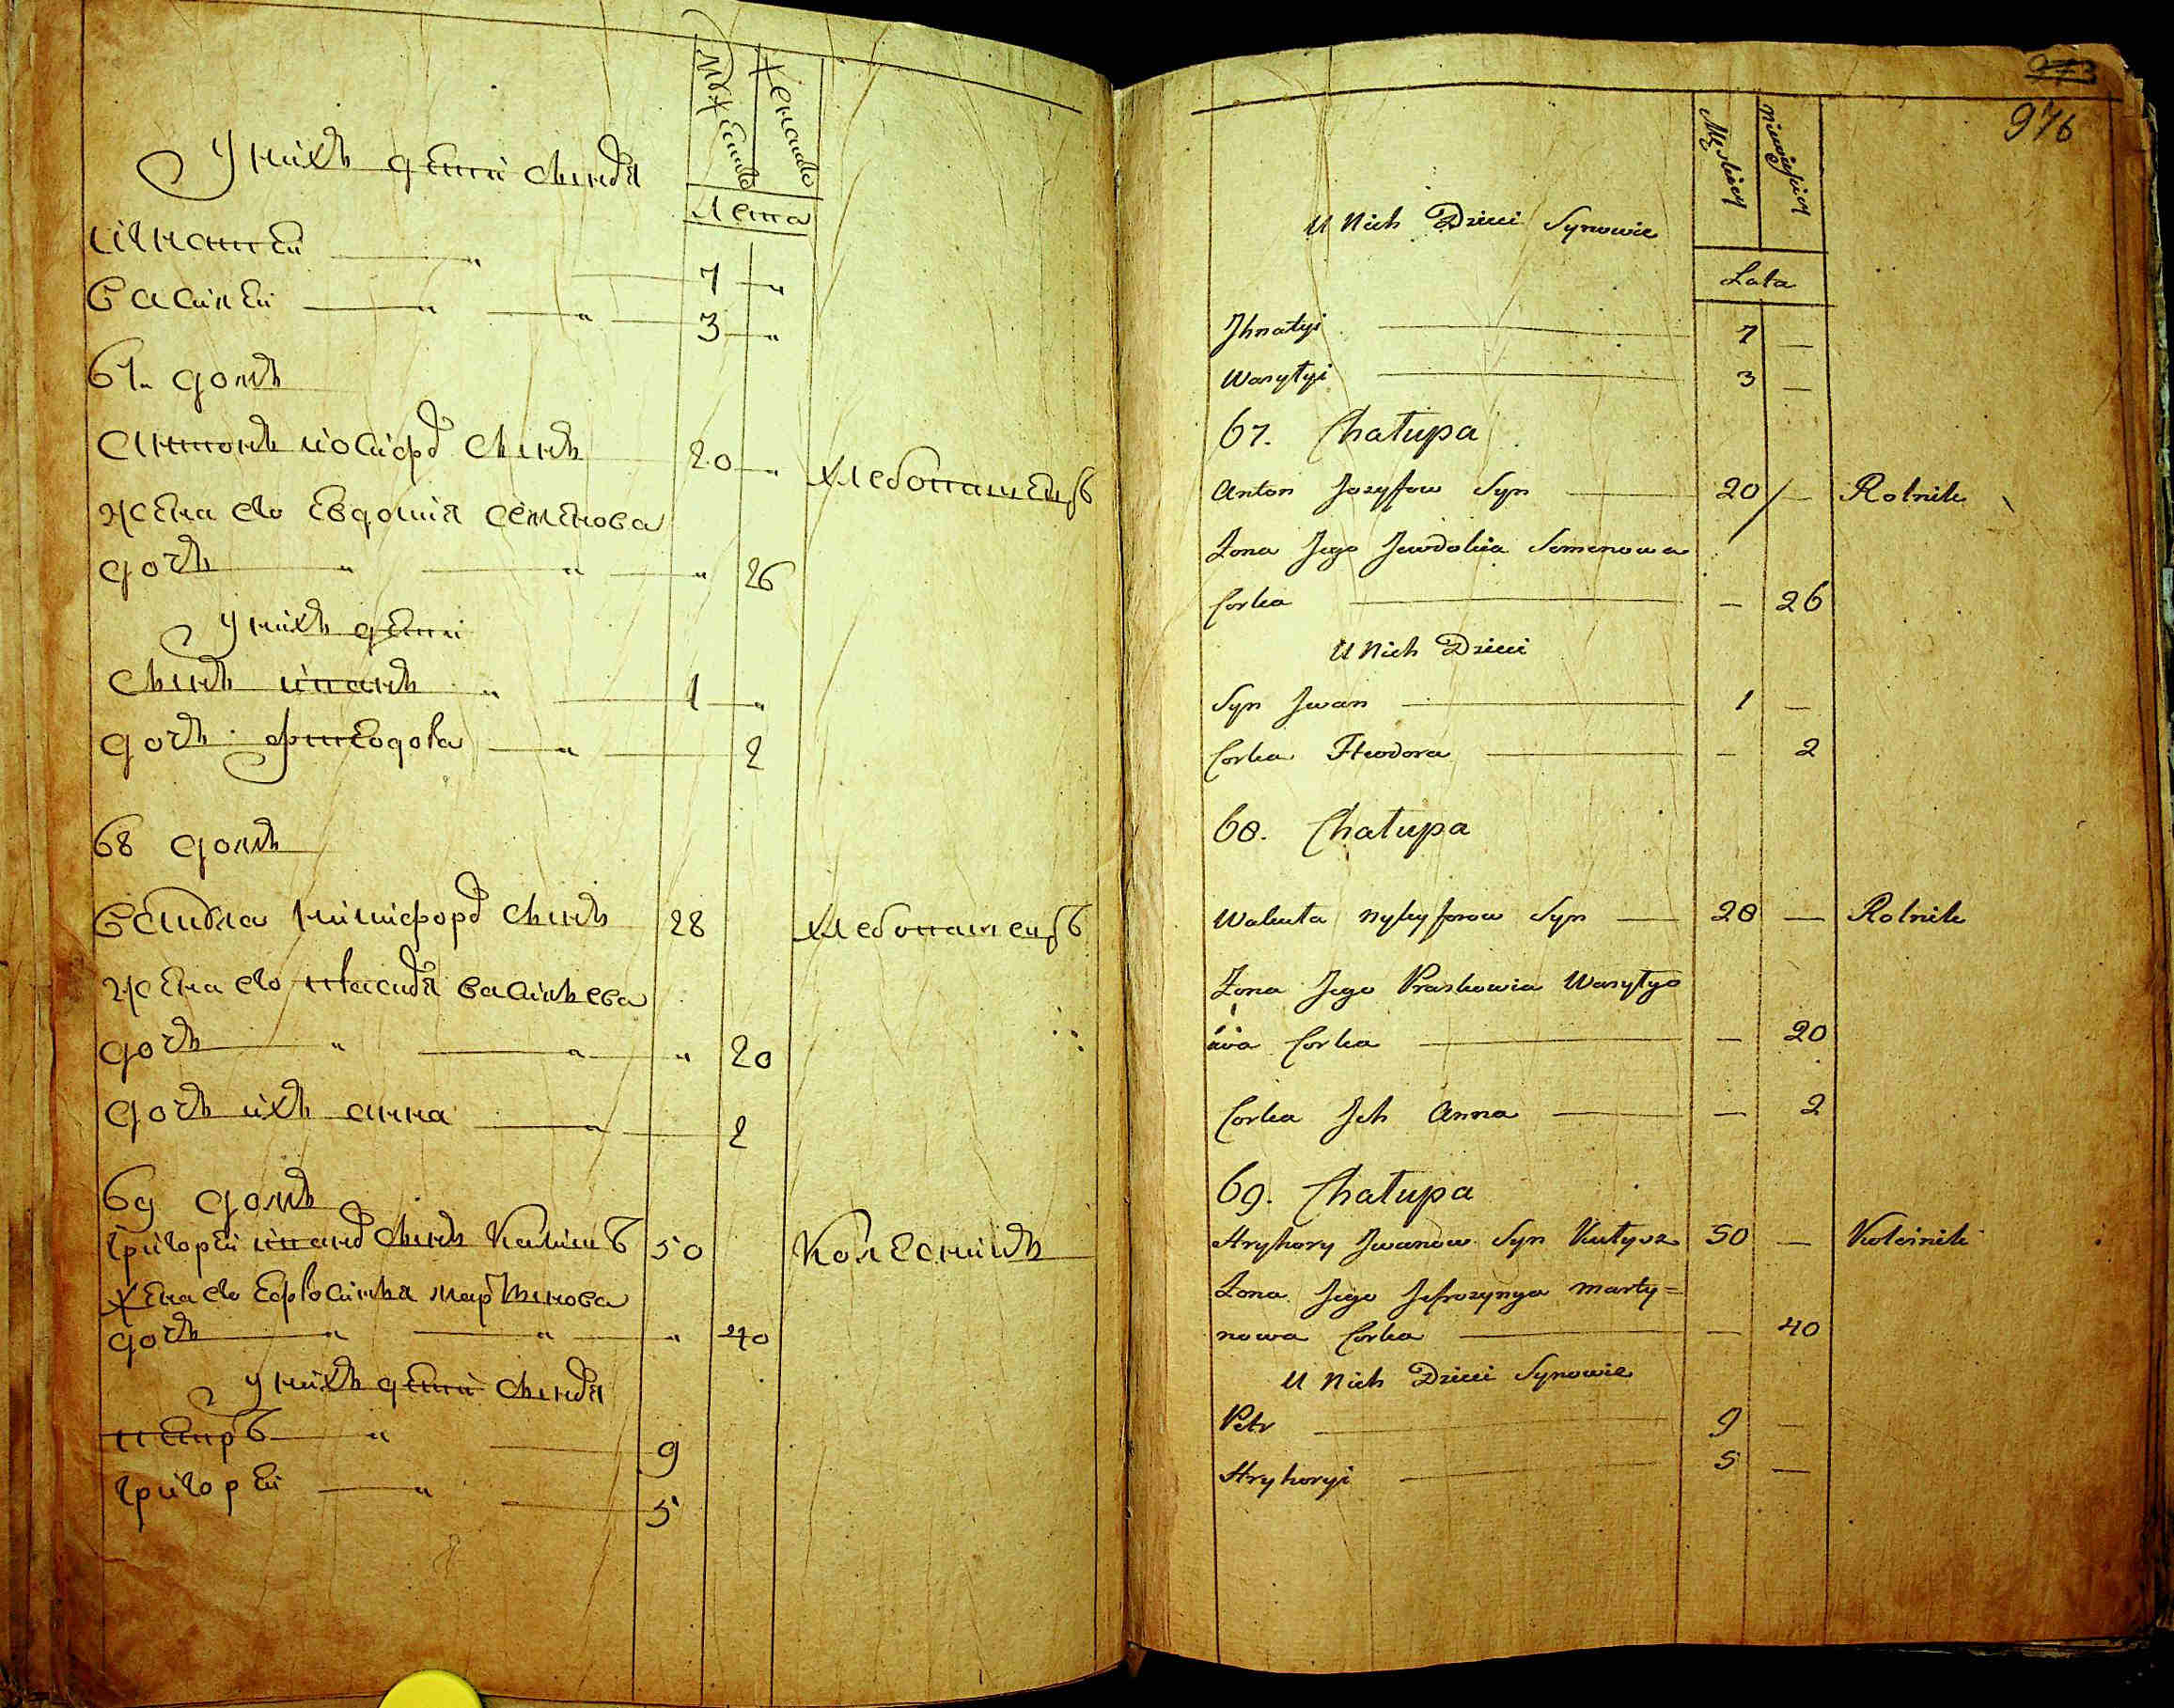 Мужеска
Женска
У нихъ дети сыновя
Лета
Игнатей " 7 "
Василей " " 3 "
67 домъ
Антонъ Иосифов сынъ 20 " хлебопашецъ
Жена его Евдокия Семенова
дочь " " " 26
У нихъ дети
Сынъ Иванъ " 1 "
Дочь Фтеодора " 2
68 домъ
никифоров сынъ 28 хлебопашецъ
Жена его Васильева
дочь " " " 20
Дочь ихъ анна " 2
69 домъ
Григорей Иванов сынъ 50 Колесникъ
Жена его Ефросинья Мартынова
дочь " " " 40
У нихъ дети сыновя
Петръ " 9
Григорей " 5
973
976
Męskiey
Niewieściey
U Nich Dzieci Synowie
Lata
Jhnatyi — 7 —
Wasyłyi — 3 —
67. Chałupa
Anton Jozyfow Syn — 20 — Rolnik
Żona Jego Jewdokia Semenowa
Corka — — 26
U Nich Dzieci
Syn Jwan — 1 —
Corka Fteodora — — 2
68. Chałupa
Nykyforow Syn — 28 — Rolnik
Żona Jego Praskowia Wasyłyo
Corka — — 20
Corka Jch Anna — — 2
69. Chałupa
Hryhory Jwanow Syn 50 —
Żona Jego Jefrozynya Marty=
nowa Corka — — 40
U Nich Dzieci Synowie
Petr — 9 —
Hryhoryi — 5 —